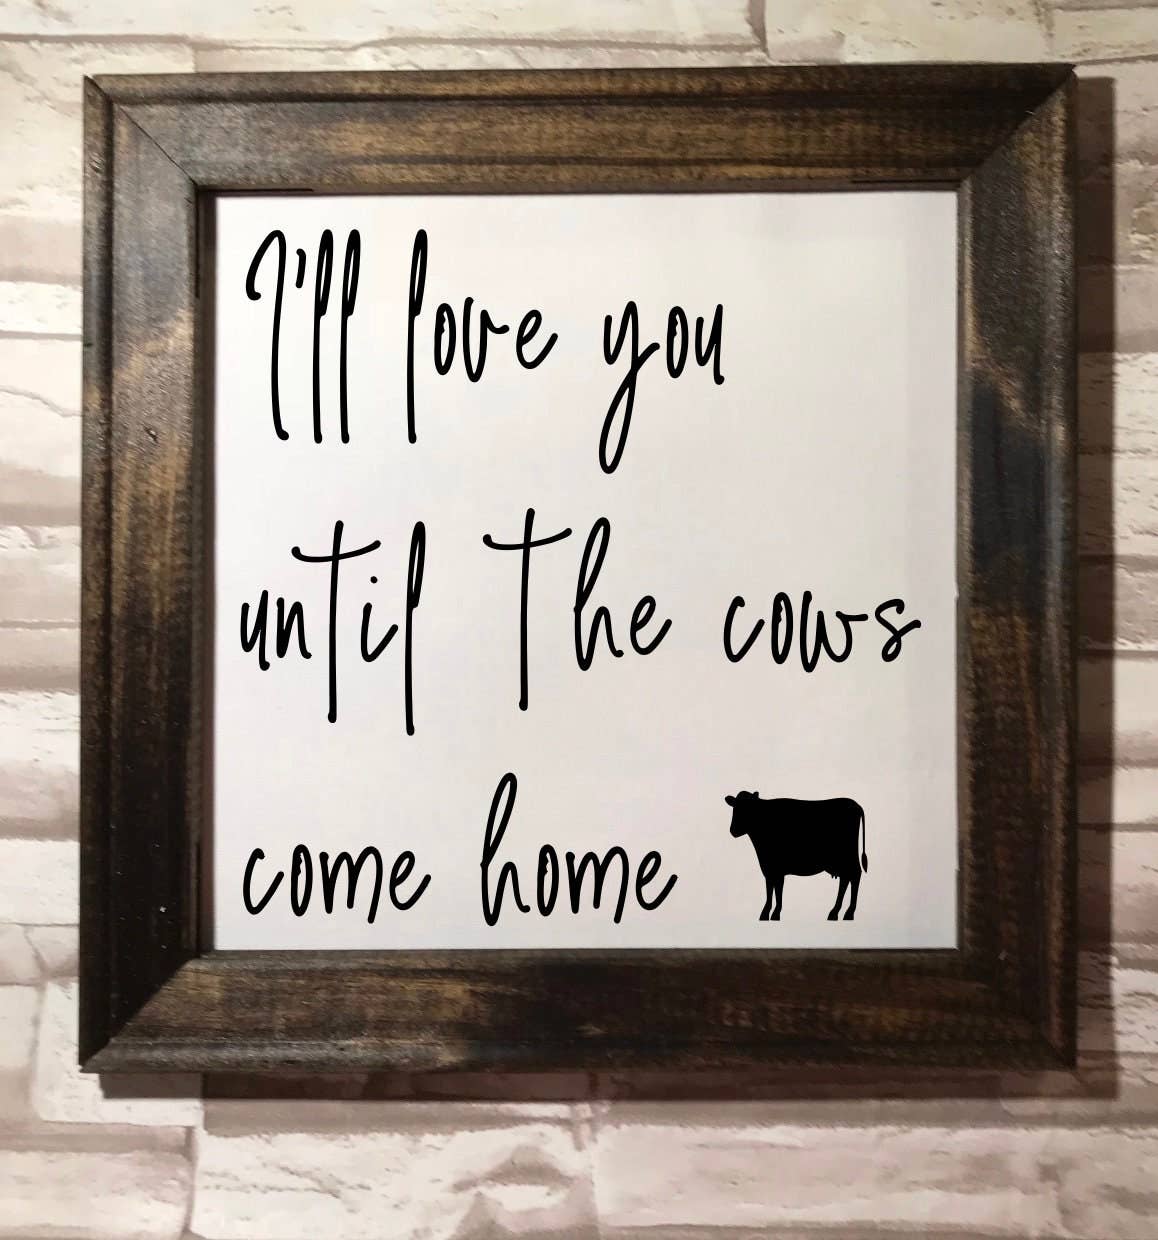 I'll love you
until the cows
come home